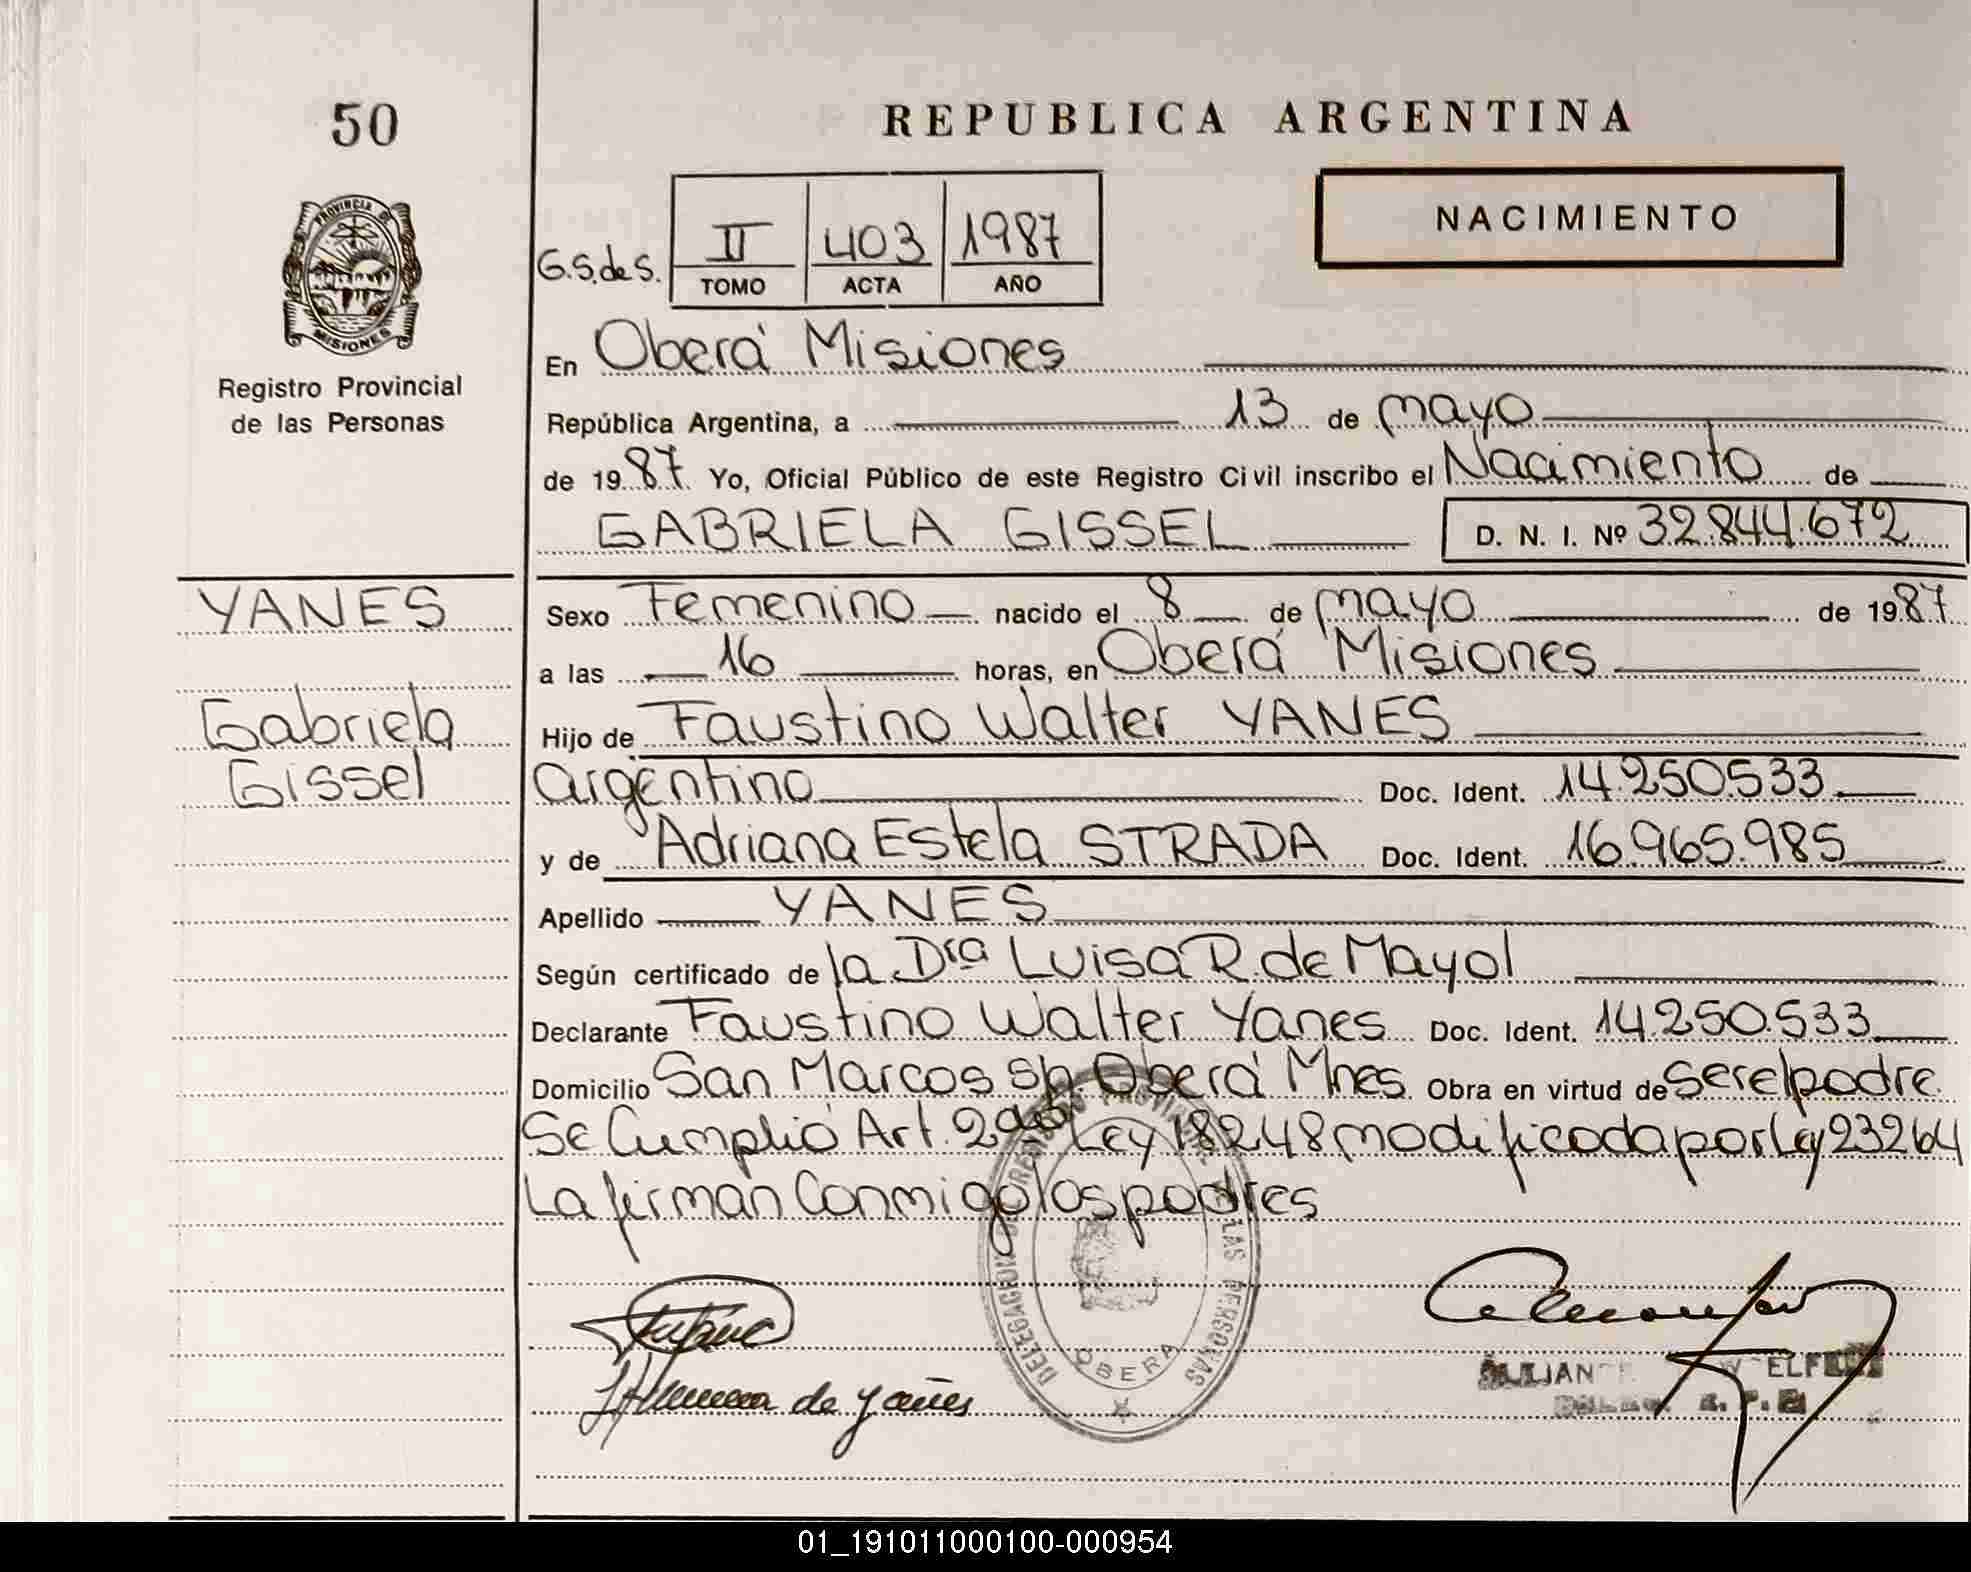 50
REPUBLICA ARGENTINA
NACIMIENTO
PROVINCIA DE
MISIONES
Registro Provincial
de las Personas
G.S.de S.
II 403 1987
TOMO ACTA AÑO
En Oberá Misiones
República Argentina, a 13 de mayo
de 1987 Yo, Oficial Público de este Registro Civil inscribo el Nacimiento de
GABRIELA GISSEL D. N. I. Nº 32.844.672
YANES
Gabriela
Gissel
Sexo Femenino nacido el 8 de mayo de 1987
a las 16 horas, en Oberá Misiones
Hijo de Faustino Walter YANES
argentino Doc. Ident. 14.250.533
y de Adriana Estela STRADA Doc. Ident. 16.965.985
Apellido YANES
Según certificado de la Dra Luisa R. de Mayol
Declarante Faustino Walter Yanes Doc. Ident. 14.250.533
Domicilio San Marcos s/n. Oberá Mnes Obra en virtud de ser el padre
Se Cumplió Art. 2do Ley 18248 modificada por Ley 23264
La firman Conmigo los padres
DELEGACION PROVINCIAL LAS PERSONAS
OBERA
de Yanes
01_191011000100-000954